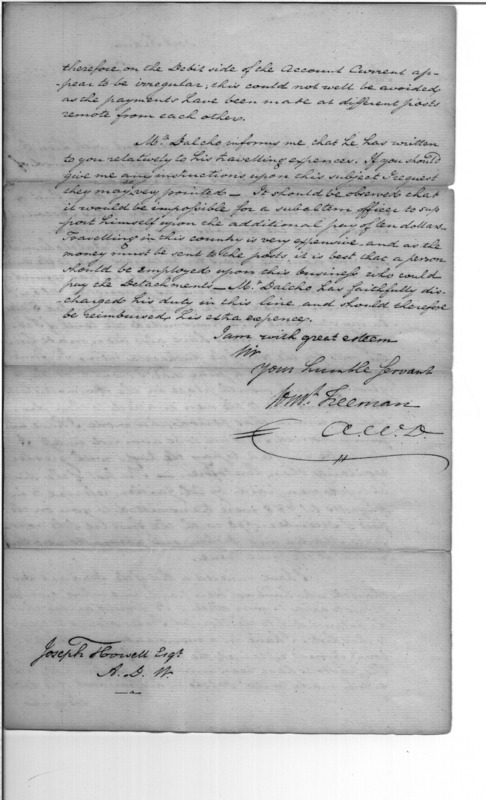 therefore on the Debit side of the Account Current ap-
-pear to be irregular; this could not well be avoided
as the payments have been made at different posts
remote from each other.
Mr. Dalcho informs me that he has written
to you relatively to his travelling expences. If you should
give me any instructions upon this subject I request
they may very pointed — It should be observed that
it would be impossible for a subaltern officer to sup
port himself upon the additional pay of ten dollars.
Travelling in this country is very expensive and as the
money must be sent to the posts, it is best that a person
should be employed upon this business who could
pay the Detachments — Mr. Dalcho has faithfully dis-
charged his duty in this line and should therefore
be reimbursed his extra expence.
I am with great esteem
Sir
Your humble Servant
Freeman
Joseph Howell Esqr.
A. D. W.